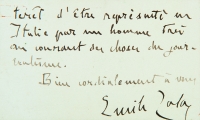 térêt d'être représenté en
Italie par un homme très
au courant des choses du jour-
nalisme.
Bien cordialement à vous
Emile Zola